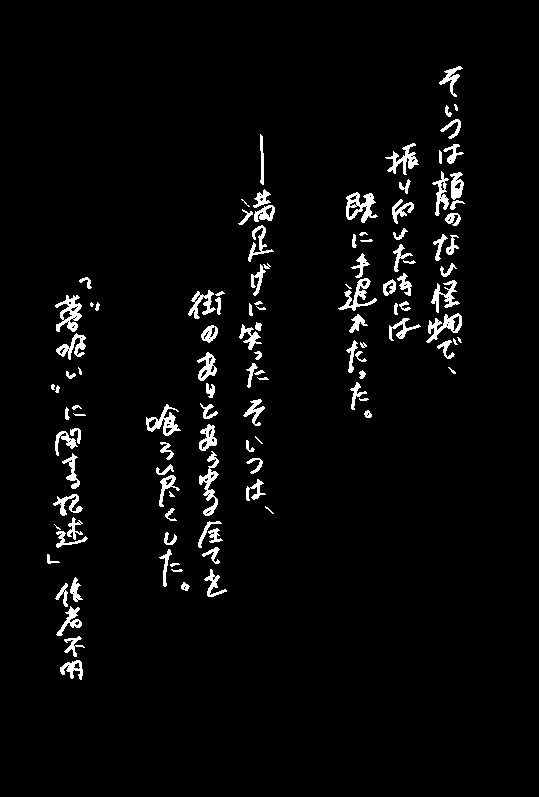 そいつは顔のない怪物で、
振り向いた時には
既に手遅れだった。
──満足げに笑ったそいつは、
街のありとあらゆる全てを
喰らい尽くした。
「"夢喰い"に関する記述」 作者不明